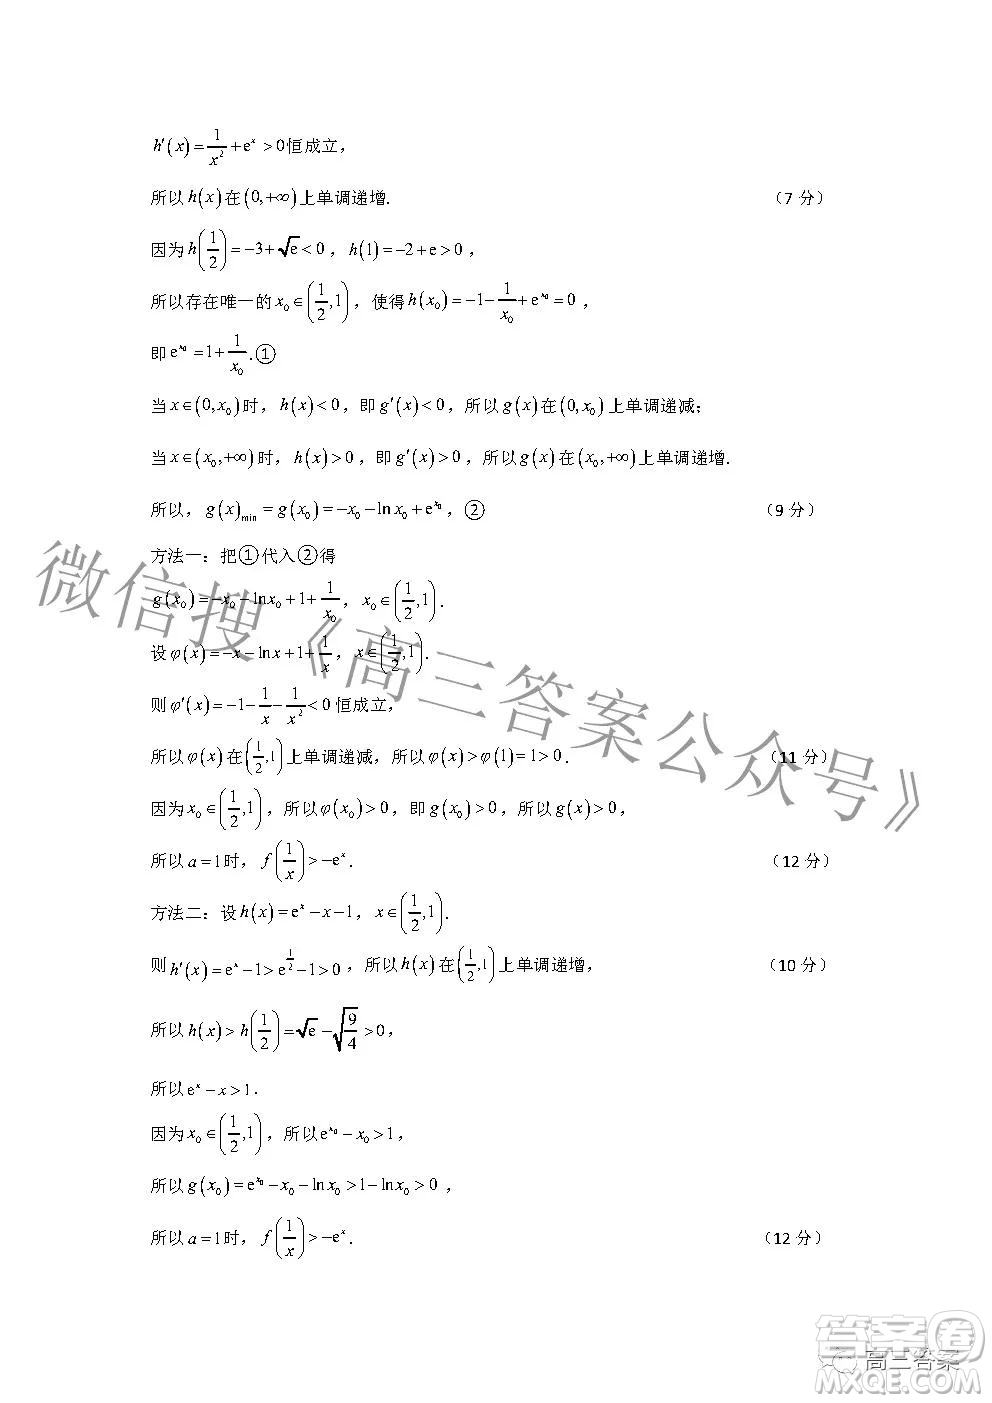 h′(x)=1/x²+eˣ>0恒成立，
所以h(x)在(0,+∞)上单调递增. （7 分）
因为h(1/2)=−3+√e<0，h(1)=−2+e>0，
所以存在唯一的x₀∈(1/2,1)，使得h(x₀)=−1−1/x₀+e^{x₀}=0，
即e^{x₀}=1+1/x₀.①
当x∈(0,x₀)时，h(x)<0，即g′(x)<0，所以g(x)在(0,x₀)上单调递减；
当x∈(x₀,+∞)时，h(x)>0，即g′(x)>0，所以g(x)在(x₀,+∞)上单调递增.
所以，g(x)_{min}=g(x₀)=−x₀−lnx₀+e^{x₀}，② （9 分）
方法一：把①代入②得
g(x₀)=−x₀−lnx₀+1+1/x₀，x₀∈(1/2,1).
设φ(x)=−x−lnx+1+1/x，x∈(1/2,1).
则φ′(x)=−1−1/x−1/x²<0恒成立，
所以φ(x)在(1/2,1)上单调递减，所以φ(x)>φ(1)=1>0. （11 分）
因为x₀∈(1/2,1)，所以φ(x₀)>0，即g(x₀)>0，所以g(x)>0，
所以a=1时，f(1/x)>−eˣ. （12 分）
方法二：设h(x)=eˣ−x−1，x∈(1/2,1).
则h′(x)=eˣ−1>e^{1/2}−1>0，所以h(x)在(1/2,1)上单调递增， （10 分）
所以h(x)>h(1/2)=√e−√(9/4)>0，
所以eˣ−x>1.
因为x₀∈(1/2,1)，所以e^{x₀}−x₀>1，
所以g(x₀)=e^{x₀}−x₀−lnx₀>1−lnx₀>0，
所以a=1时，f(1/x)>−eˣ. （12 分）
微信搜《高三答案公众号》
答案圈
高三答案
MXQE.COM